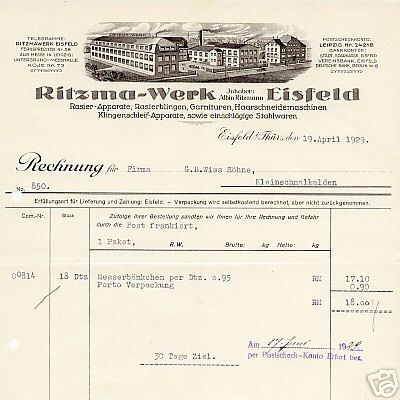 TELEGRAMME:
RITZMAWERK EISFELD
FERNSPRECHER Nr. 58
ZUR MESSE IN LEIPZIG:
UNTERGRUND-MESSHALLE
KOJE Nr. 73
POSTSCHECKKONTO:
LEIPZIG Nr. 24218
BANKKONTEN:
STÄDT. SPARKASSE EISFELD
VEREINSBANK, EISFELD
DEUTSCHE BANK, BERLIN W. 8
Ritzma-Werk Inhaber: Albin Ritzmann Eisfeld
Rasier-Apparate, Rasierklingen, Garnituren, Haarschneidemaschinen
Klingenschleif-Apparate, sowie einschlägige Stahlwaren
Eisfeld i/Thür., den 19.April 1929.
Rechnung für Firma G.B.Wiss Söhne,
No. 850. Kleinschmalkalden
Erfüllungsort für Lieferung und Zahlung: Eisfeld. – Verpackung wird selbstkostend berechnet, aber nicht zurückgenommen.
Com.-Nr. Stück Zufolge Ihrer Bestellung sandten wir Ihnen für Ihre Rechnung und Gefahr
durch die Post frankiert,
1 Paket, R.W. Brutto: kg Netto: kg
00814 18 Dtz Messerbänkchen per Dtz. o.95 RM 17.10
Porto Verpackung 0.90
RM 18.00
Am 17. Juni 1929
per Postscheck-Konto Erfurt bez.
30 Tage Ziel.